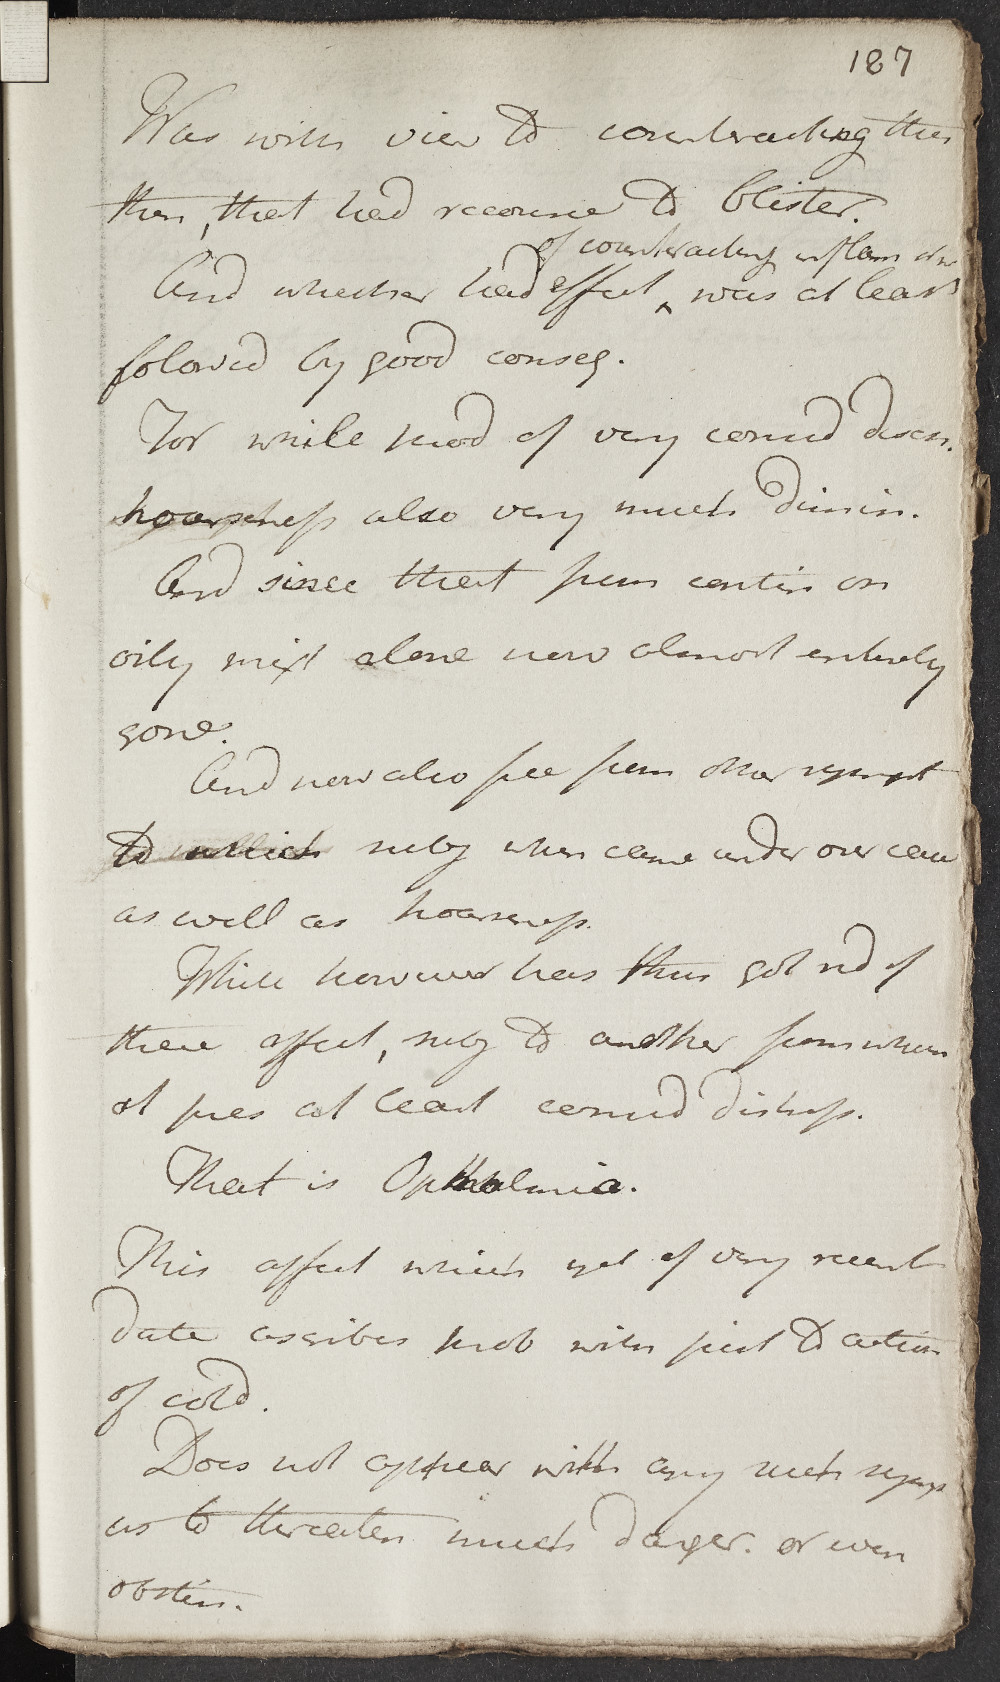 187
Was with view to counteracting this
then, that had recourse to blister.
of counteracting inflam
And whether had effect ‸ was at least
folowed by good conseq.
For while prod of very consid disch.
hoarseness also very much dimin.
And since that from contin on
oily mixt alone now almost entirely
gone.
And now also free from other sympt
to which subj when came under our care
as well as hoarseness.
While however has thus got rid of
these affect, subj to another from whence
at pres at least consid distress.
That is Opthalmia.
This affect which yet of very recent
date ascribes prob with just to action
of cold.
Does not appear with any such symp
as to threaten much danger. or even
obstin.